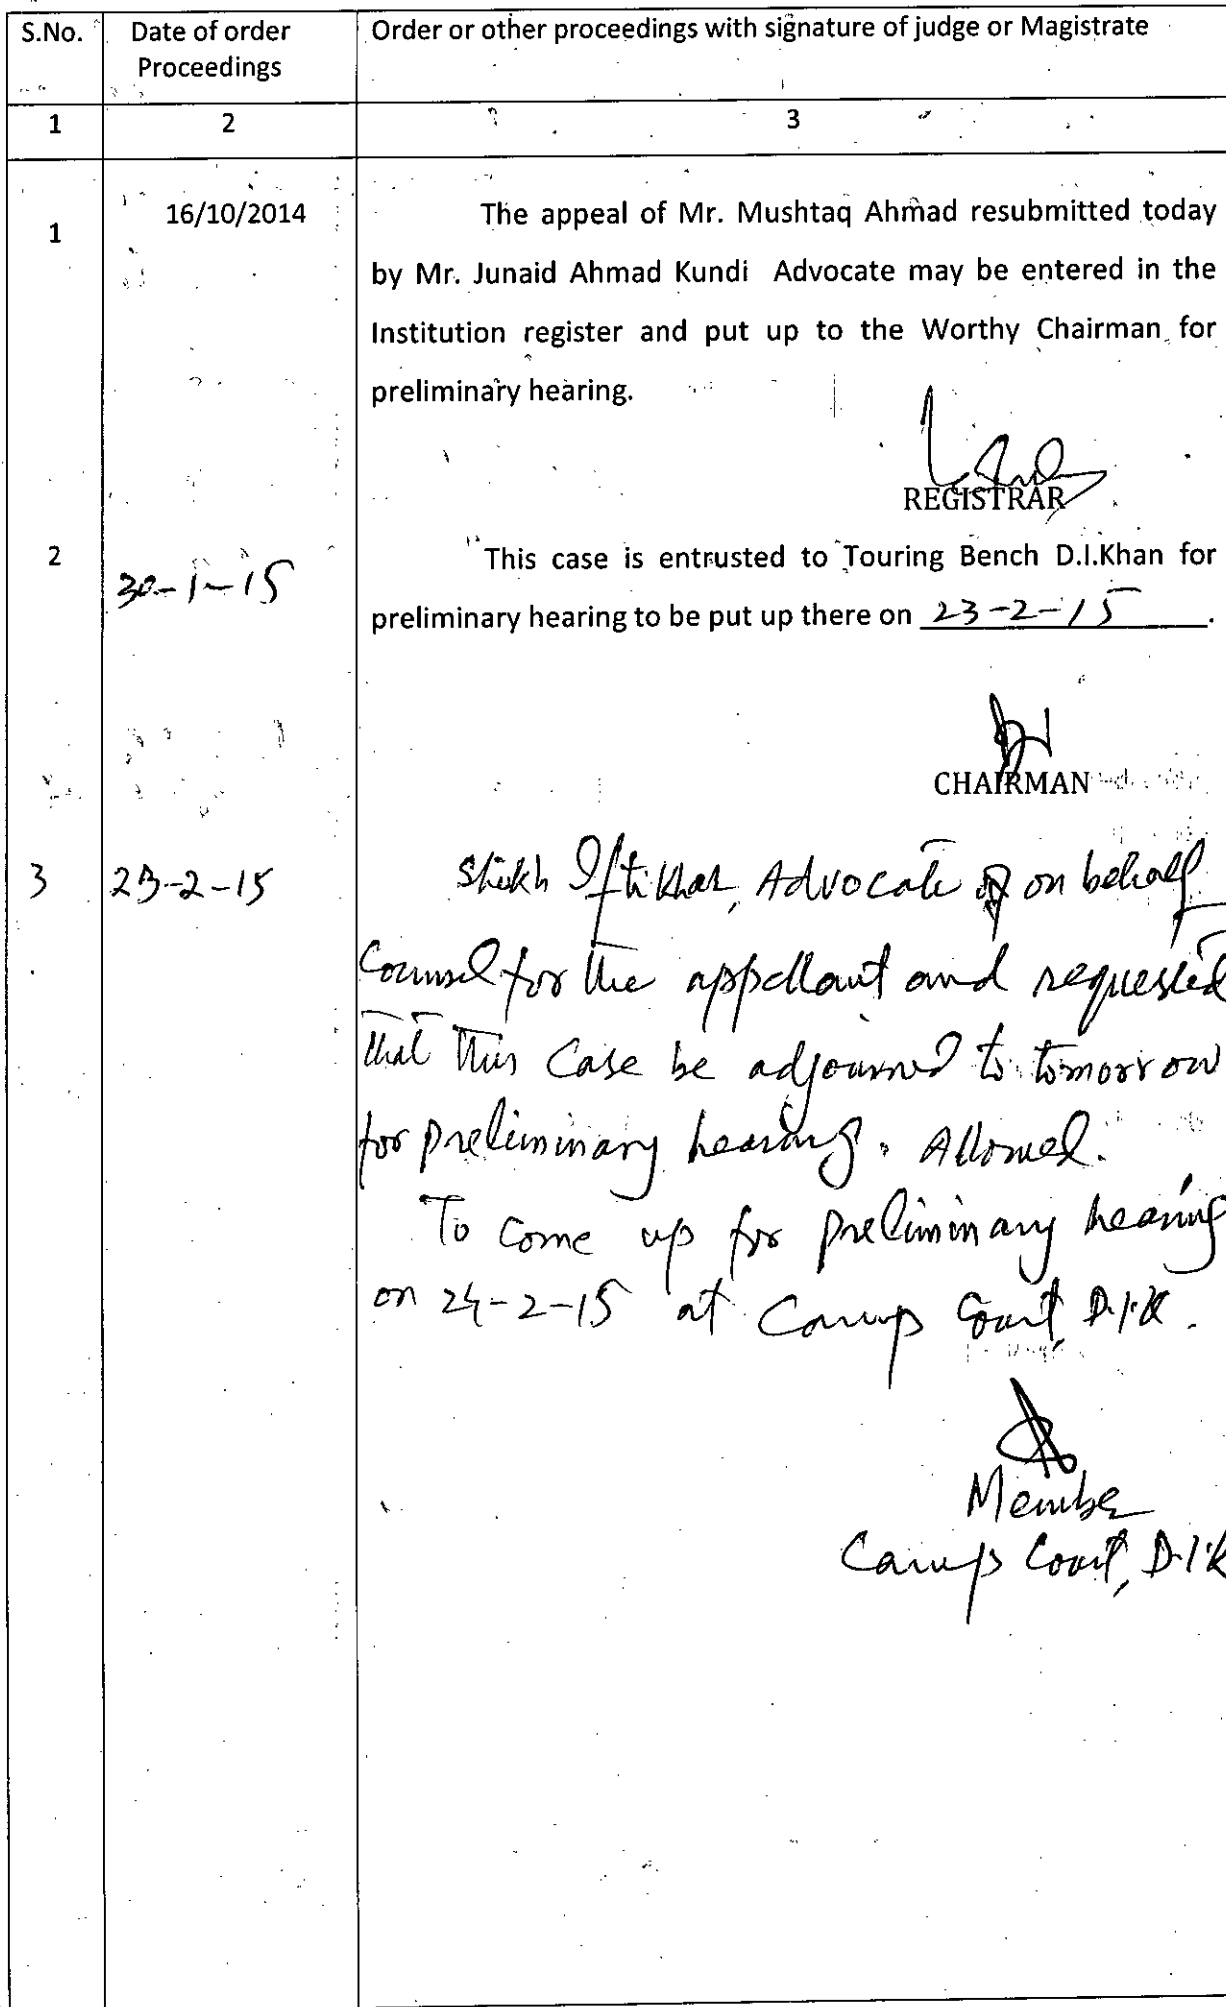 S.No. Date of order Order or other proceedings with signature of judge or Magistrate
Proceedings
1 2 3
1 16/10/2014 The appeal of Mr. Mushtaq Ahmad resubmitted today
by Mr. Junaid Ahmad Kundi Advocate may be entered in the
Institution register and put up to the Worthy Chairman for
preliminary hearing.
REGISTRAR
2 30-1-15 This case is entrusted to Touring Bench D.I.Khan for
preliminary hearing to be put up there on 23-2-15.
CHAIRMAN
3 23-2-15 Shikh Iftikhar, Advocate on behalf
Counsel for the appellant and requested
that this Case be adjourned to tomorrow
for preliminary hearing. Allowed.
To come up for preliminary hearing
on 24-2-15 at Camp Court, D.I.K.
Member
Camp Court, D.I.K